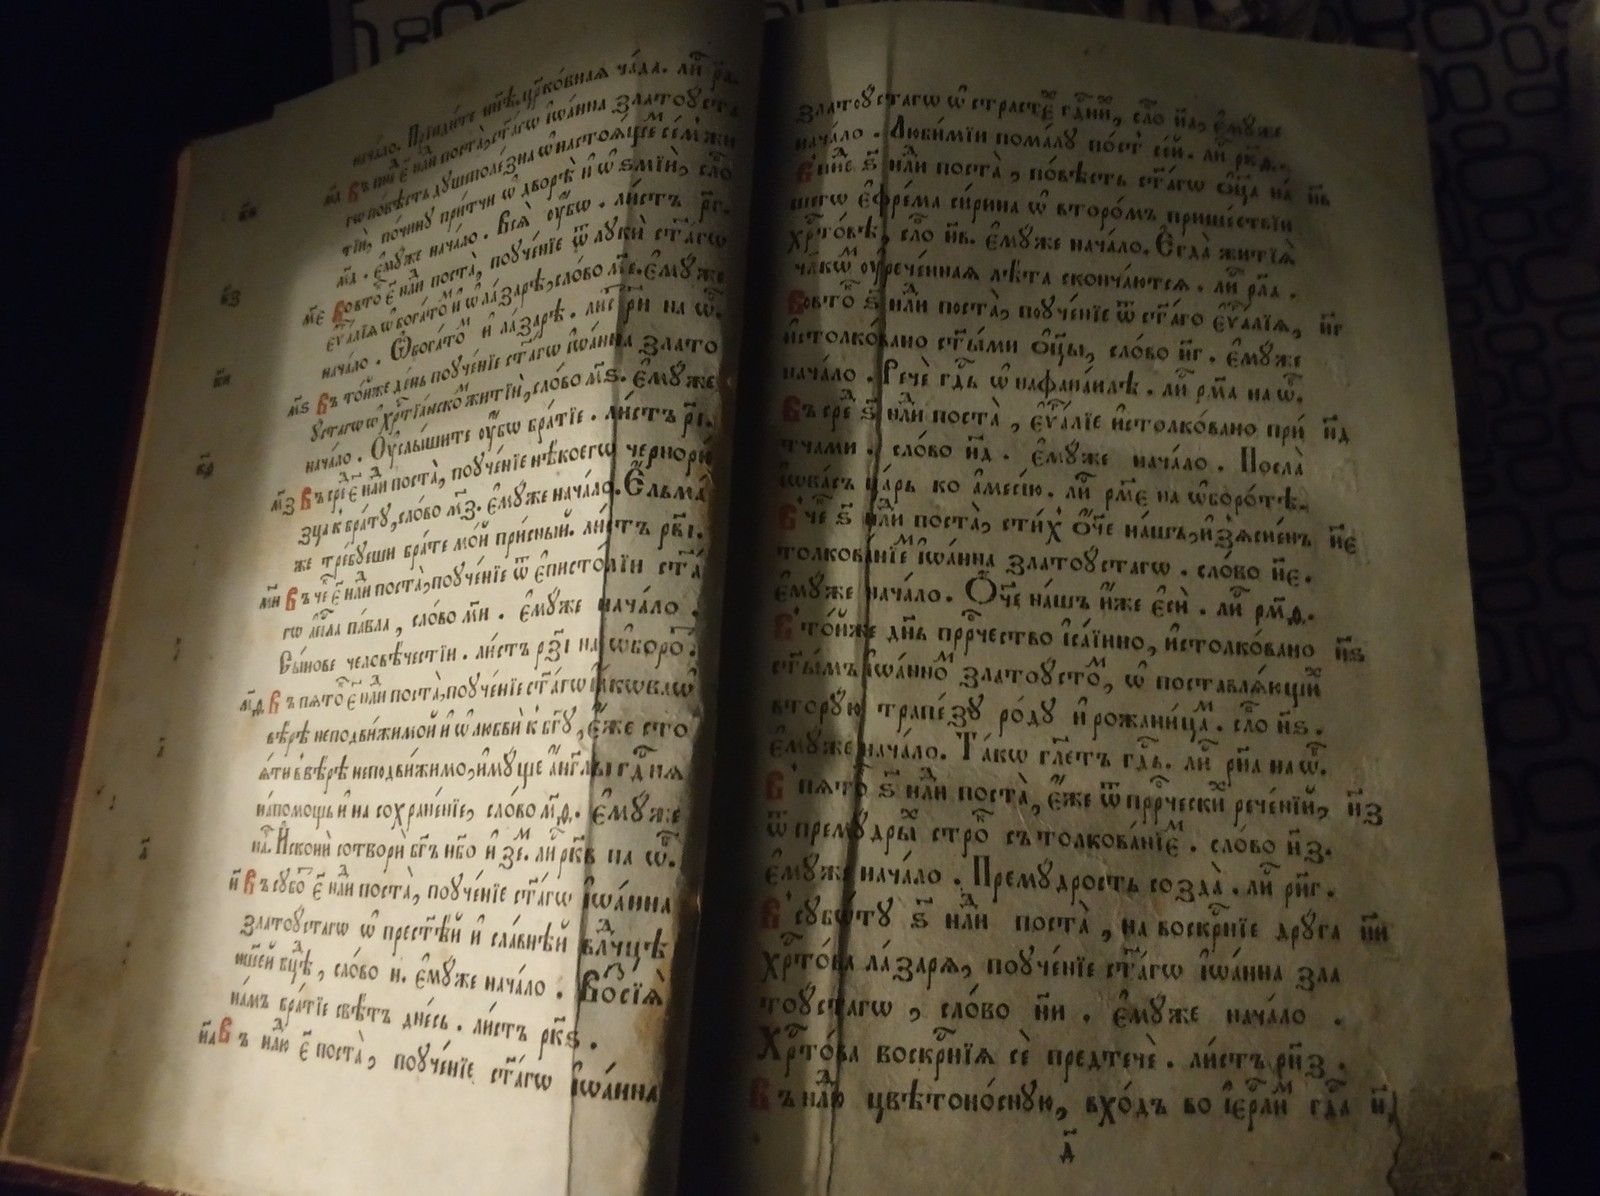 начáло. Прїиди́те нн҃ѣ цр҃ко́внаѧ ча́да. ли҃
м҃д Въ пн҃ е҃ нл҃и поста̀, ст҃а́гѡ і҆ѡа́нна златоꙋста
гѡ по́вѣсть дꙋшеполе́зна ѡ҆ настоѧ́щемъ се́мъ жи
тїѝ, по чи́нꙋ при́тчи ѡ҆ дворѣ̀ и҆ ѡ҆ ѕмїѝ, сло́
м҃д. є҆мꙋ́же нача́ло. Всѧ̀ оу҆́бѡ. ли́стъ р҃г.
м҃є Во вто҃ е҃ нл҃и поста̀, поꙋче́нїе ѿ лꙋкѝ ст҃а́гѡ
є҆ѵ҃а́лїѧ ѡ҆ бога́томъ и҆ ѡ҆ ла́зарѣ, сло́во м҃є. є҆мꙋ́же
нача́ло. Ѡ҆ бога́томъ и҆ ла́зарѣ. лис р҃и на ѡ҆҃.
м҃ѕ Въ то́йже де́нь поꙋче́нїе ст҃а́гѡ і҆ѡа́нна злато
ꙋстагѡ ѡ҆ хрт҃їа́нскомъ житїѝ, сло́во м҃ѕ. є҆мꙋ́же
нача́ло. Оу҆слы́шите оу҆́бѡ бра́тїе. ли́стъ р҃і.
м҃з Въ сре҃ е҃ нл҃и поста̀, поꙋче́нїе нѣ́коегѡ черно́ри
зца к бра́тꙋ, сло́во м҃з. є҆мꙋ́же нача́ло. Є҆льма́
же тре́бꙋеши бра́те мо́й при́сный. ли́стъ рв҃і.
м҃и Въ че҃ е҃ нл҃и поста̀, поꙋче́нїе ѿ є҆писто́лїи ст҃а́
гѡ а҆п҃ла па́вла, сло́во м҃и. є҆мꙋ́же нача́ло.
Сы́нове человѣ́честїи. ли́стъ рз҃і на ѡ҆боро҃.
м҃ѳ Въ пѧто҃ е҃ нл҃и поста̀, поꙋче́нїе ст҃а́гѡ і҆а́кѡвла ѡ҆
вѣ́рѣ неподви́жимой и҆ ѡ҆ любвѝ к бг҃ꙋ, є҆́же сто
ѧ́ти в вѣ́рѣ неподви́жимо, и҆мꙋ́ще а҆́нг҃лы гд҃нѧ
на по́мощь и҆ на сохране́нїе, сло́во м҃ѳ. є҆мꙋ́же
на҃. И҆сконѝ сотворѝ бг҃ъ нб҃о и҆ зе́м. ли҃ рк҃в на ѡ҆҃.
н҃ Въ сꙋбо҃ е҃ нл҃и поста̀, поꙋче́нїе ст҃а́гѡ і҆ѡа́нна
златоꙋ́стагѡ ѡ҆ прест҃ѣй и҆ сла́внѣй влⷣчцѣ
на́шей бц҃ѣ, сло́во н. є҆мꙋ́же нача́ло. Восїѧ̀
на́мъ бра́тїе свѣ́тъ дне́сь. ли́стъ рк҃ѕ.
н҃а Въ нл҃ю е҃ поста̀, поꙋче́нїе ст҃а́гѡ і҆ѡа́нна
златоꙋстагѡ ѡ҆ страсте́хъ гд҃нихъ, сло҃ н҃а, є҆мꙋ́же
нача́ло. Люби́мїи пома́лꙋ по́стъ се́й. ли҃ рк҃ѳ.
В пн҃е ѕ҃ нл҃и поста̀, по́вѣсть ст҃а́гѡ ѻ҆ц҃а на́ н҃в
шегѡ є҆фре́ма си́рина ѡ҆ второ́мъ прише́ствїи
хрт҃о́вѣ, сло҃ н҃в. є҆мꙋ́же нача́ло. Є҆гда̀ житїѧ̀
чл҃кѡмъ оу҆рече́ннаѧ лѣ́та сконча́ютсѧ. ли҃ рл҃а.
Во вто҃ ѕ҃ нл҃и поста̀, поꙋче́нїе ѿ ст҃а́го є҆ѵ҃а́лїѧ, н҃г
и҆столко́вано ст҃ы́ми ѻ҆ц҃ы̀, сло́во н҃г. є҆мꙋ́же
нача́ло. Речѐ гд҃ь ѡ҆ нафана́илѣ. ли҃ рм҃а на ѡ҆҃.
Въ сре҃ ѕ҃ нл҃и поста̀, є҆ѵ҃а́лїе и҆столко́вано при́ н҃д
тчами. сло́во н҃д. є҆мꙋ́же нача́ло. Посла̀
і҆ѡва́съ ца́рь ко а҆месі́ю. ли҃ рм҃є на ѡ҆боро́тѣ.
В че҃ ѕ҃ нл҃и поста̀, сти́хъ ѻ҆́ч҃е на́шъ, и҆з̾ѧсне́нъ н҃є
толкова́нїемъ і҆ѡа́нна златоꙋстагѡ. сло́во н҃є.
є҆мꙋ́же нача́ло. Ѻ҆́ч҃е на́шъ и҆́же є҆сѝ. ли҃ рм҃ѳ.
В то́йже дн҃ь прⷪ҇ро́чество і҆са́їино, и҆столко́вано н҃ѕ
ст҃ы́мъ і҆ѡа́нномъ златоꙋ́стомъ, ѡ҆ поставлѧ́ющихъ
вторꙋ́ю трапе́зꙋ ро́дꙋ и҆ рожани́цамъ. сло҃ н҃ѕ.
є҆мꙋ́же нача́ло. Та́кѡ гл҃етъ гд҃ь. ли҃ рн҃а на ѡ҆҃.
В пѧто҃ ѕ҃ нл҃и поста̀, є҆́же ѿ прⷪ҇ро́ческихъ рече́нїй, н҃з
ѿ премꙋ́дрыхъ стро҃ съ толкова́нїемъ. сло́во н҃з.
є҆мꙋ́же нача́ло. Премꙋ́дрость созда̀. ли҃ рн҃г.
В сꙋбѡ́тꙋ ѕ҃ нл҃и поста̀, на воскр҃нїе дрꙋга н҃и
хрт҃о́ва ла́зарѧ, поꙋче́нїе ст҃а́гѡ і҆ѡа́нна зла
тоꙋстагѡ, сло́во н҃и. є҆мꙋ́же нача́ло.
Хрт҃о́ва воскр҃нїѧ сѐ предтечѐ. ли́стъ рн҃з.
Въ нл҃ю цвѣтоно́снꙋю, вхо́дъ во і҆ерⷭ҇ли́мъ гд҃а
д҃